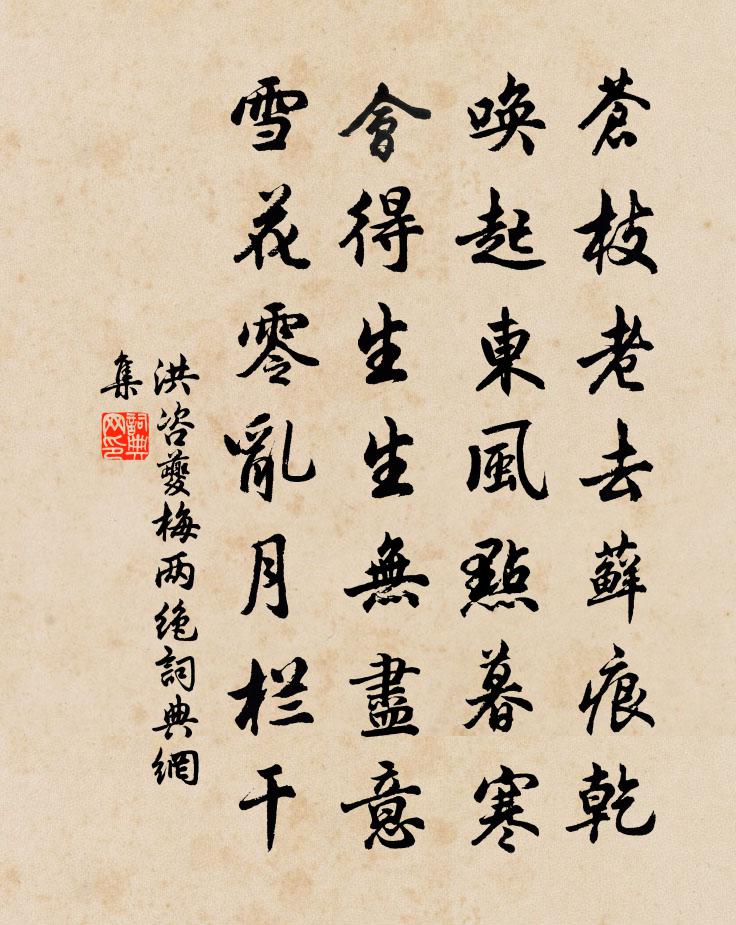 蒼枝老去蘚痕乾
喚起東風點暮寒
會得生生無盡意
雪花零亂月栏干
洪咨夔梅两绝詞典網
集
詞典
网印